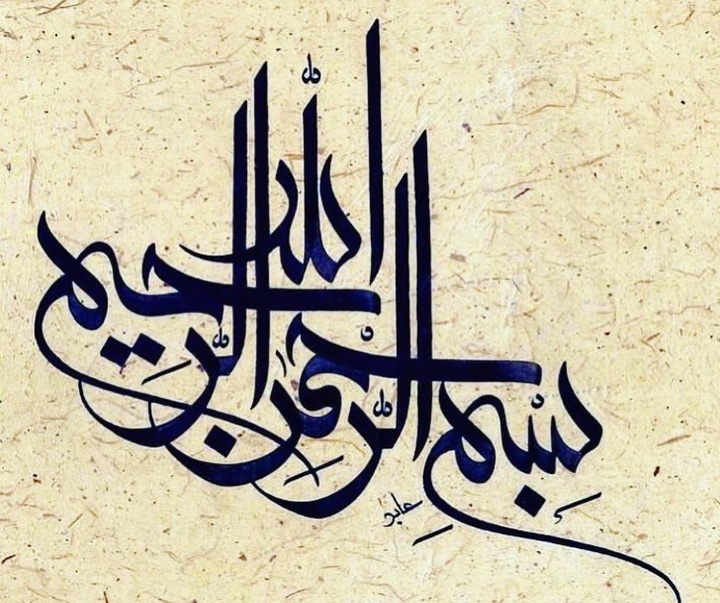 بِسْمِ اللّٰه الرّحْمٰن الرّحيم
عابد